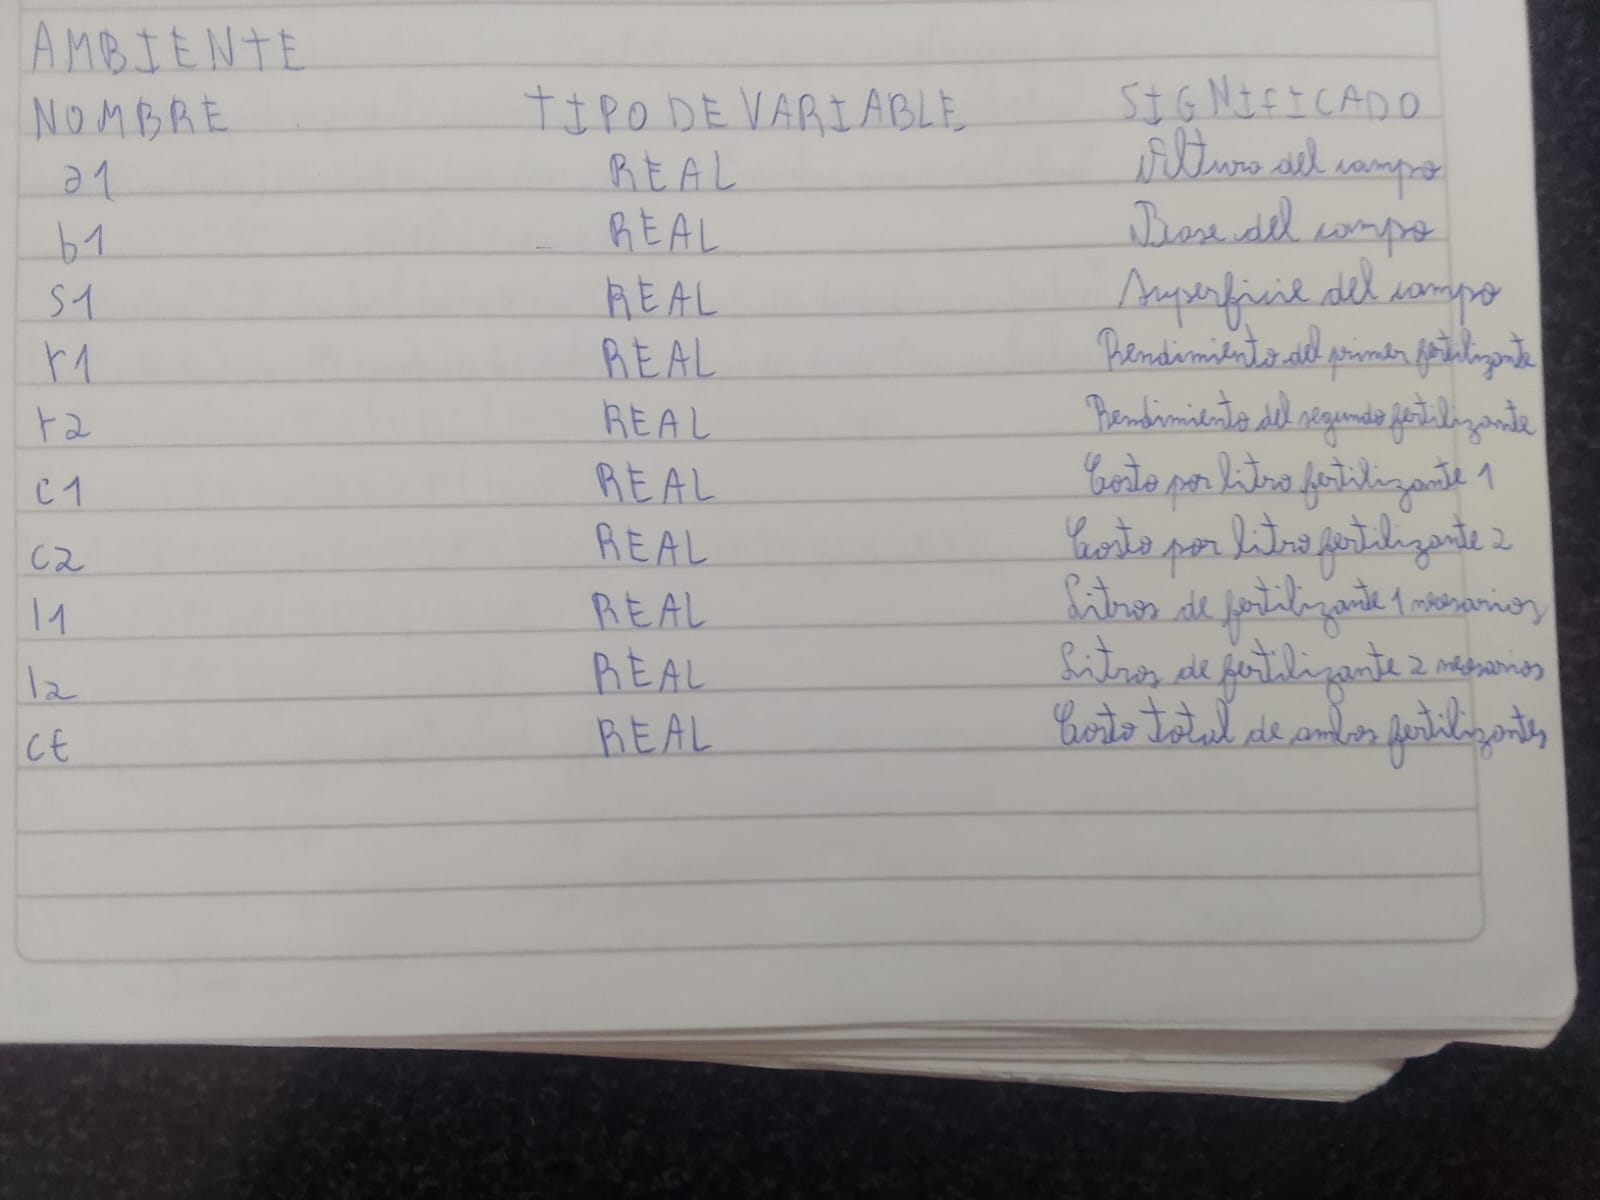 AMBIENTE
NOMBRE TIPO DE VARIABLE SIGNIFICADO
a1 REAL Altura del campo
b1 REAL Base del campo
s1 REAL Superficie del campo
r1 REAL Rendimiento del primer fertilizante
r2 REAL Rendimiento del segundo fertilizante
c1 REAL Costo por litro fertilizante 1
c2 REAL Costo por litro fertilizante 2
l1 REAL Litros de fertilizante 1 necesarios
l2 REAL Litros de fertilizante 2 necesarios
ct REAL Costo total de ambos fertilizantes